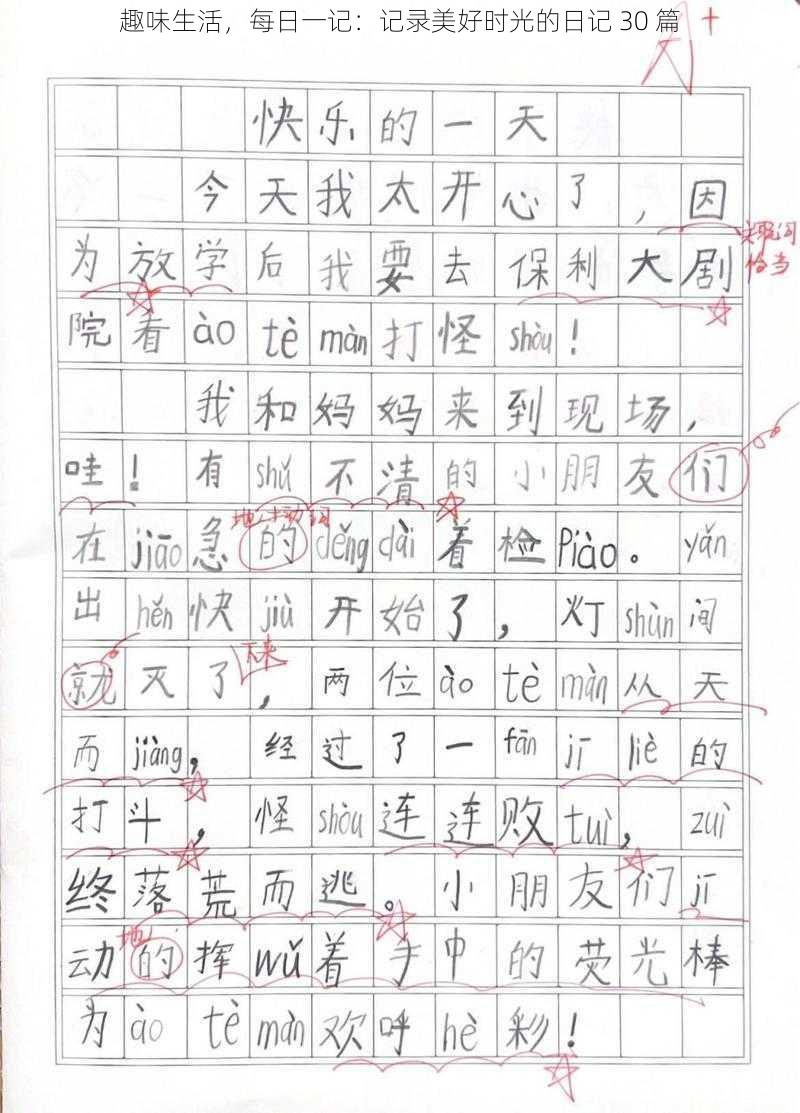 趣味生活，每日一记：记录美好时光的日记 30 篇
A+
快乐的一天
今天我太开心了，因
关联词
恰当
为放学后我要去保利大剧
院看ào tè màn打怪shòu！
我和妈妈来到现场，
哇！有shǔ不清的小朋友们
地+动词
在jiāo急的děng dài着检Piào。yǎn
出hěn快jiù开始了，灯shùn间
下来
就灭了，两位ào tè màn从天
而jiàng，经过了一fān jī liè的
打斗，怪shòu连连败tuì，zuì
终落荒而逃。小朋友们jī
地
动的挥wǔ着手中的荧光棒
为ào tè màn欢呼hè彩！